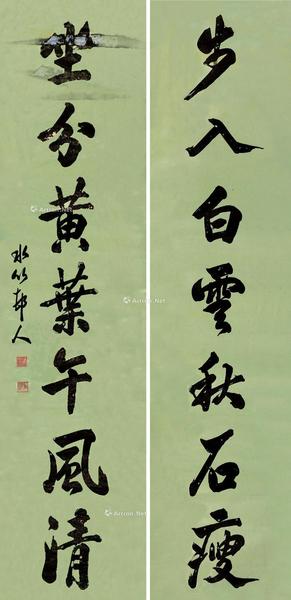 步入白雲秋石瘦
坐分黃葉午風清
水竹邨人
Artron.Net
Artron.Net
Artron.Net
Artron.Net